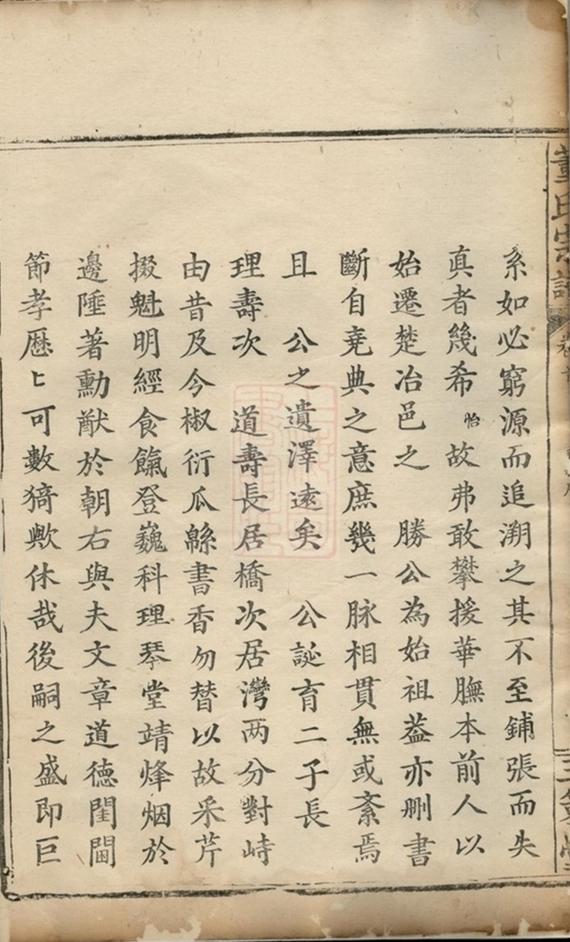 董氏宗譜
系如必窮源而追溯之其不至鋪張而失
真者幾希怡故弗敢攀援華膴本前人以
始遷楚冶邑之 勝公為始祖葢亦刪書
斷自堯典之意庶幾一脉相貫無或紊焉
且 公之遺澤遠矣 公誕育二子長
理壽次 道壽長居橋次居灣两分對峙
由昔及今椒衍瓜緜書香勿替以故采芹
掇魁明經食餼登巍科理琴堂靖烽烟於
邊陲著勳猷於朝右與夫文章道德閨閫
節孝歷〻可數猗歟休哉後嗣之盛即巨